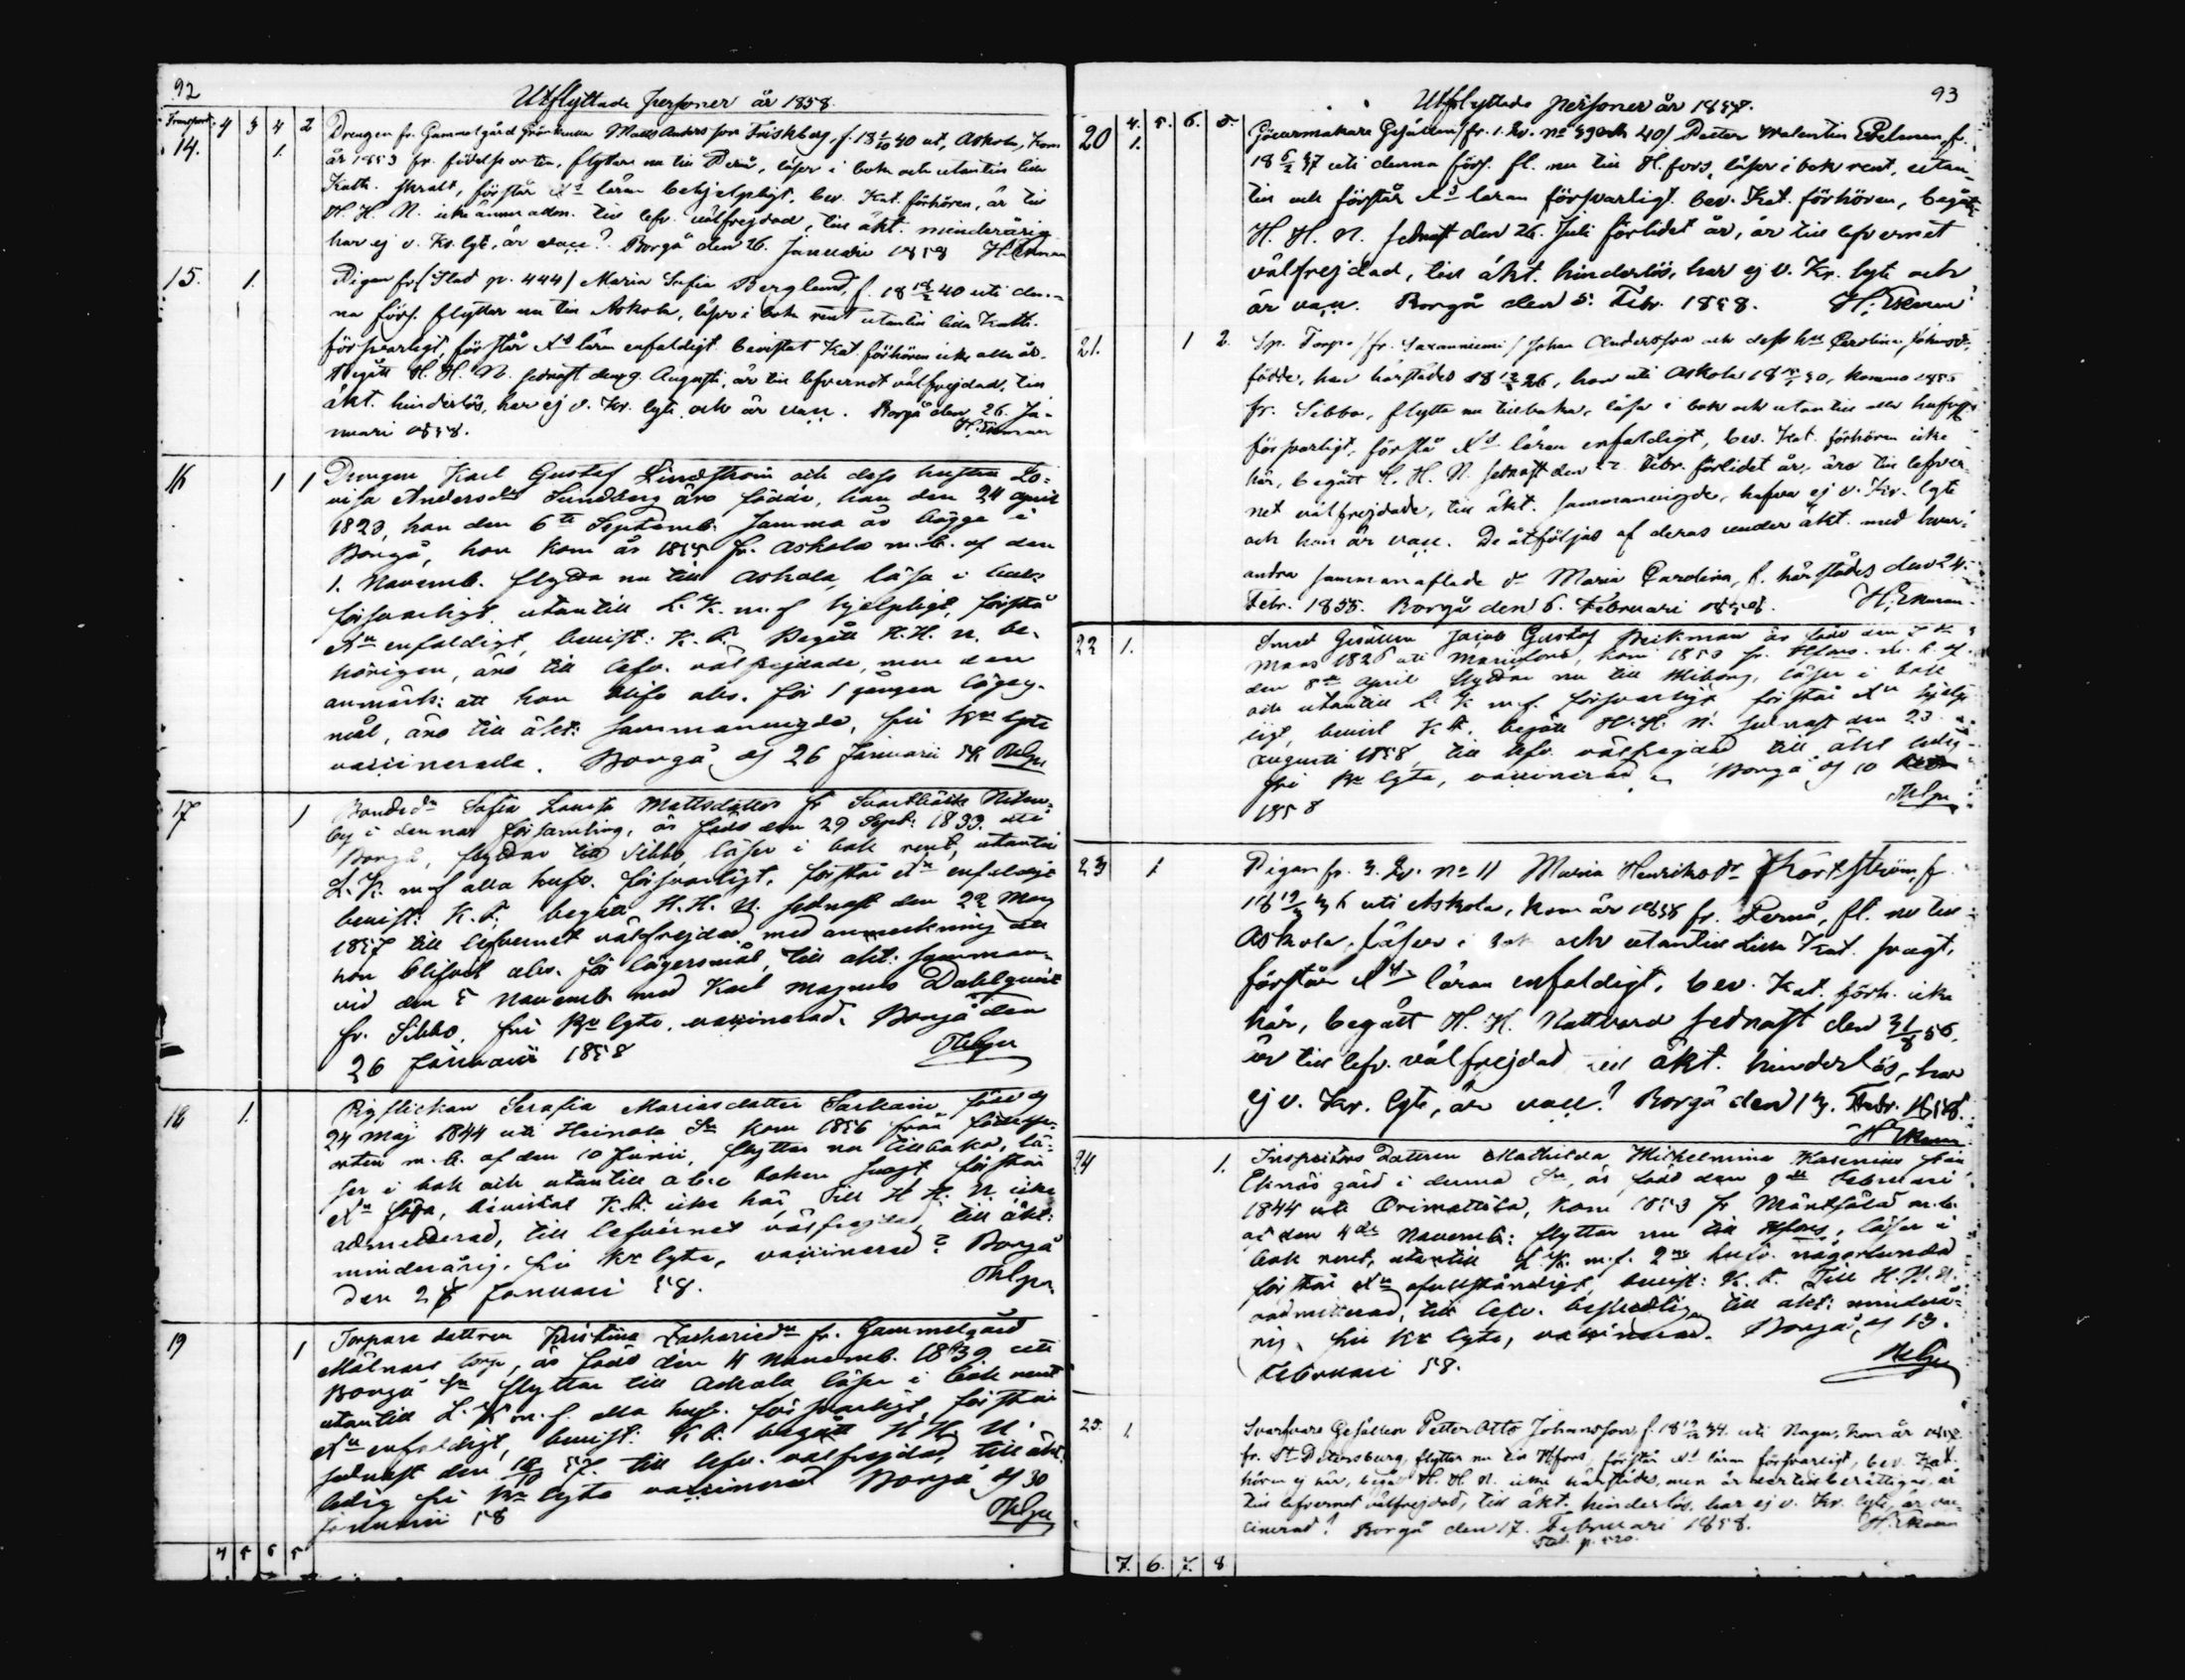 92
Utflyttade personer år 1858.
Transport. 4 3 4 2
14. 1. Drengen fr. Gammelgård Matts Andersson Friskberg, f. 18 40 uti Askola, kom
år 1853 fr. födelseorten, flyttar nu till Pernå, läser i boken och utantill lilla
Kath. svagt, förstår Xs läran behjelpligt, bev. Kat. förhören, är till
H. H. N. icke ännu adm. till lefv. välfrejdad, till äkt. minderårig
har ej v. Kr. lyte, är vacc? Borgå den 26. Januari 1858 H. Ekman
15. 1. Pigan fr. (Stad p. 444) Maria Sofia Berglund, f. 18 18/2 40 uti den-
na förs. flyttar nu till Askola, läser i bok rent utantill lilla Kath.
försvarligt, förstår Xs läran enfaldigt bevistat Kat. förhören icke alla år.
Begått H. H. N. sednast den 9. Augusti, är till lefvernet välfrejdad, till
äkt. hinderlös, har ej v. Kr. lyte och är vacc. Borgå den 26. Ja-
nuari 1858. H. Ekman
16 1 1 Drengen Karl Gustaf Lindström och dess hustru Lo-
visa Andersdr Sundberg äro födde, han den 24 April
1823, hon den 6te Septemb. samma år bägge i
Borgå, hon kom år 1855 fr. Askola m. b. af den
1. Novemb. flytta nu till Askola, läsa i bok
försvarligt utantill L. K. m. f. hjelpligt, förstå
Xn enfaldigt, bevist: K. F. Begått H. H. N. be-
hörigen, äro till lefv. välfrejdade, men den
anmärk: att hon blifv. abs. för 1 gången lägers-
mål, äro till äkt: sammanvigde, fri Kr lyte
vaccinerade. Borgå d 26 Januarii 58
17 1 Bondedr Sofia Lovisa Mattsdotter fr Svartbäck
by i denna församling, är född den 29 Sept: 1833 uti
Borgå, flyttar till Sibbo, läser i bok rent, utantill
L. K. m f alla hufv. försvarligt, förstår Xn enfaldigt
bevist: K. F. begått H. H. N. sednast den 22 Maj
1857 till lefvernet välfrejdad med anmärkning att
hon blifvit abs. för lägersmål, till äkt: samman-
vid den 5 Novemb med Karl Magnus Dahlqvist
fr. Sibbo. fri Kr lyte, vaccinerad. Borgå den
26 Januarii 1858
18 1. Pigflickan Serafia Mariasdotter Sarkain född d
24 Maj 1844 uti Heinola Sn kom 1856 från födelse-
orten m. b. af den 10 Junii, flyttar nu tillbaka, lä-
ser i bok och utantill abc boken svagt förstår
Xn föga, bevistat K. F. icke här till H H. N. icke
admitterad, till lefvernet välfrejdad till äkt:
minderårig, fri Kr lyte, vaccinerad? Borgå
den 28 Januari 58.
19 1 Torpare dottren Kristina Zachariedr fr. Gammelgård
Mölnars torp, är född den 4 Novemb. 1839 uti
Borgå Sn flyttar till Askola läser i bok rent
utantill L. K m. f. alla hufv. försvarligt, förstår
Xn enfaldigt, bevist: K F. begått H. H. N.
sednast den 18/10 57. till lefv. välfrejdad, till äkt.
ledig fri Kr lyte vaccinerad Borgå d 30
Januarii 58
4 5 6 5
93
Utflyttade personer år 1858.
4. 5. 6. 5.
20 1. Görtmakare Gesällen (fr. 1. Qv. No 39 och 40) Petter Walentin Edelman, f.
18 5/2 37 uti denna förs. fl. nu till H. fors, läser i bok rent, utan-
till och förstår Xs läran försvarligt. bev. Kat. förhören, begått
H. H. N. sednast den 26. Juli förlidet år, är till lefvernet
välfrejdad, till äkt. hinderlös, har ej v. Kr. lyte och
är vacc. Borgå den 5. Febr. 1858. H. Ekman
21. 1 2. Sp. Torp. (fr. Saxanniemi) Johan Andersson och dess hu Carolina Johansdr,
födde, han härstädes 18 26, hon uti Askola 18 30, komna 1855
fr. Sibbo, flytta nu tillbaka, läsa i bok och utantill alla hufv.
försvarligt, förstå Xs läran enfaldigt, bev. Kat. förhören icke
här, begått H. H. N. sednast den Febr. förlidet år, äro till lefver-
net välfrejdade, till äkt. sammanvigde, hafva ej v. Kr. lyte
och han är vacc. De åtföljas af deras under äkt. med hvar-
andra sammanaflade dr Maria Carolina, f. härstädes den 24.
Febr. 1855. Borgå den 6. Februari 1858. H. Ekman.
22 1. Smed Gesällen Jacob Gustaf Beikman är född den
Mars 1826 uti Mariefors, kom 1853 fr. Hfors. m. b. af
den 8de April flyttar nu till Wiborg, läser i bok
och utantill L. K m. f. försvarligt förstår Xn hjelp-
ligt, bevist K F. begått H. H. N. sednast den 23
Augusti 1858, till lefv. välfrejdad till äkt ledig
fri Kr lyte, vaccinerad. Borgå d 10 Febr
1858
23 1 Pigan fr. 3. Qv. No 11 Maria Henriksdr f.
18 12/3 36 uti Askola, kom år 1858 fr. Pernå, fl. nu till
Askola, läser i bok och utantill lilla Kat. svagt,
förstår Xs läran enfaldigt, bev. Kat. förh. icke
här, begått H. H. Nattvard sednast den 31/8 56,
är till lefv. välfrejdad till äkt. hinderlös, har
ej v. Kr. lyte, är vacc? Borgå den 13. Febr. 1858.
H. Ekman
24 1. Inspektors Dottren Mathilda Wilhelmina Kasenius från
Ekinäs gård i denna Sn, är född den 9de Februari
1844 uti Orimattila, kom 1853 fr Mäntsälä m. b.
af den 4de Novemb: flyttar nu till Hfors, läser i
bok rent, utantill L. K. m. f. 2ne hufv. någorlunda
förstår Xn ofullständigt, bevist: K. F. Till H. H. N.
oadmitterad, till lefv. beskedlig till äkt: minderå-
rig, fri Kr lyte, vaccinerad. Borgå, d 13.
Februari 58.
25. 1 Svarfvare Gesällen Petter Otto Johansson, f. 18 34. uti Nagu, kom år
fr. St. Petersburg, flyttar nu till Hfors, förstår Xs läran försvarligt, bev. Kat.
hören ej här, begått H. H. N. icke härstädes, men är dertill berättigad, är
till lefvernet välfrejdad, till äkt. hinderlös, har ej v. Kr. lyte, är vac-
cinerad? Borgå den 17. Februari 1858. H. Ekman
7. 6. 7. 8